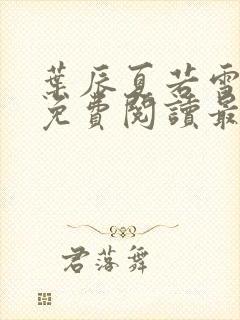 葉辰夏若雪
免費閱讀最
君落舞